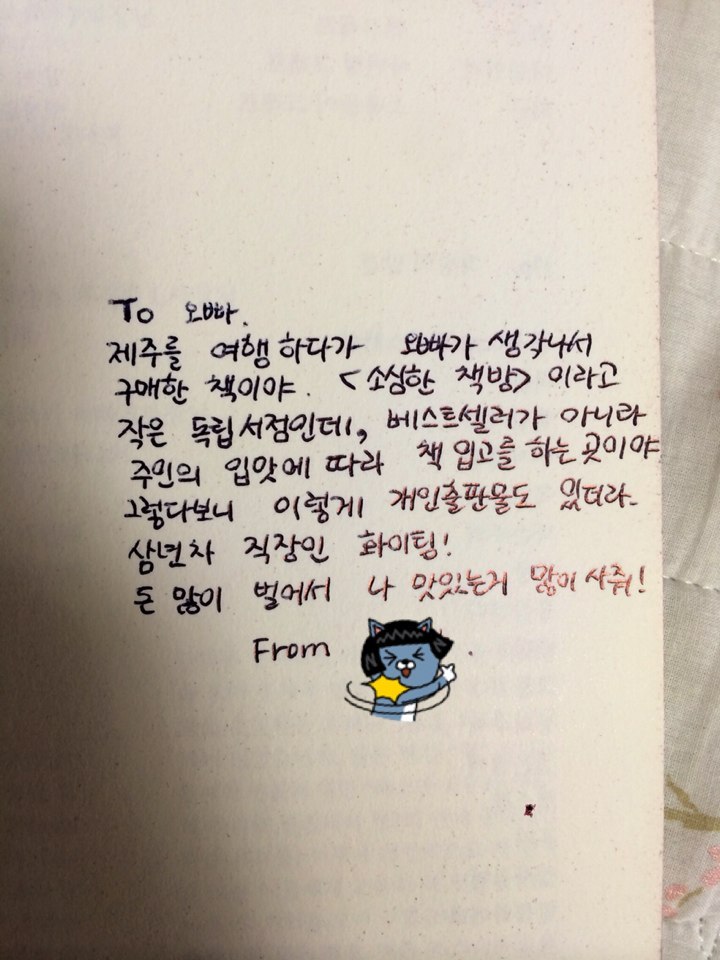 To 오빠.
제주를 여행하다가 오빠가 생각나서
구매한 책이야. <소심한 책방> 이라고
작은 독립서점인데, 베스트셀러가 아니라
주인의 입맛에 따라 책 입고를 하는 곳이야
그렇다보니 이렇게 개인출판물도 있더라.
삼년차 직장인 화이팅!
돈 많이 벌어서 나 맛있는거 많이 사줘!
From .